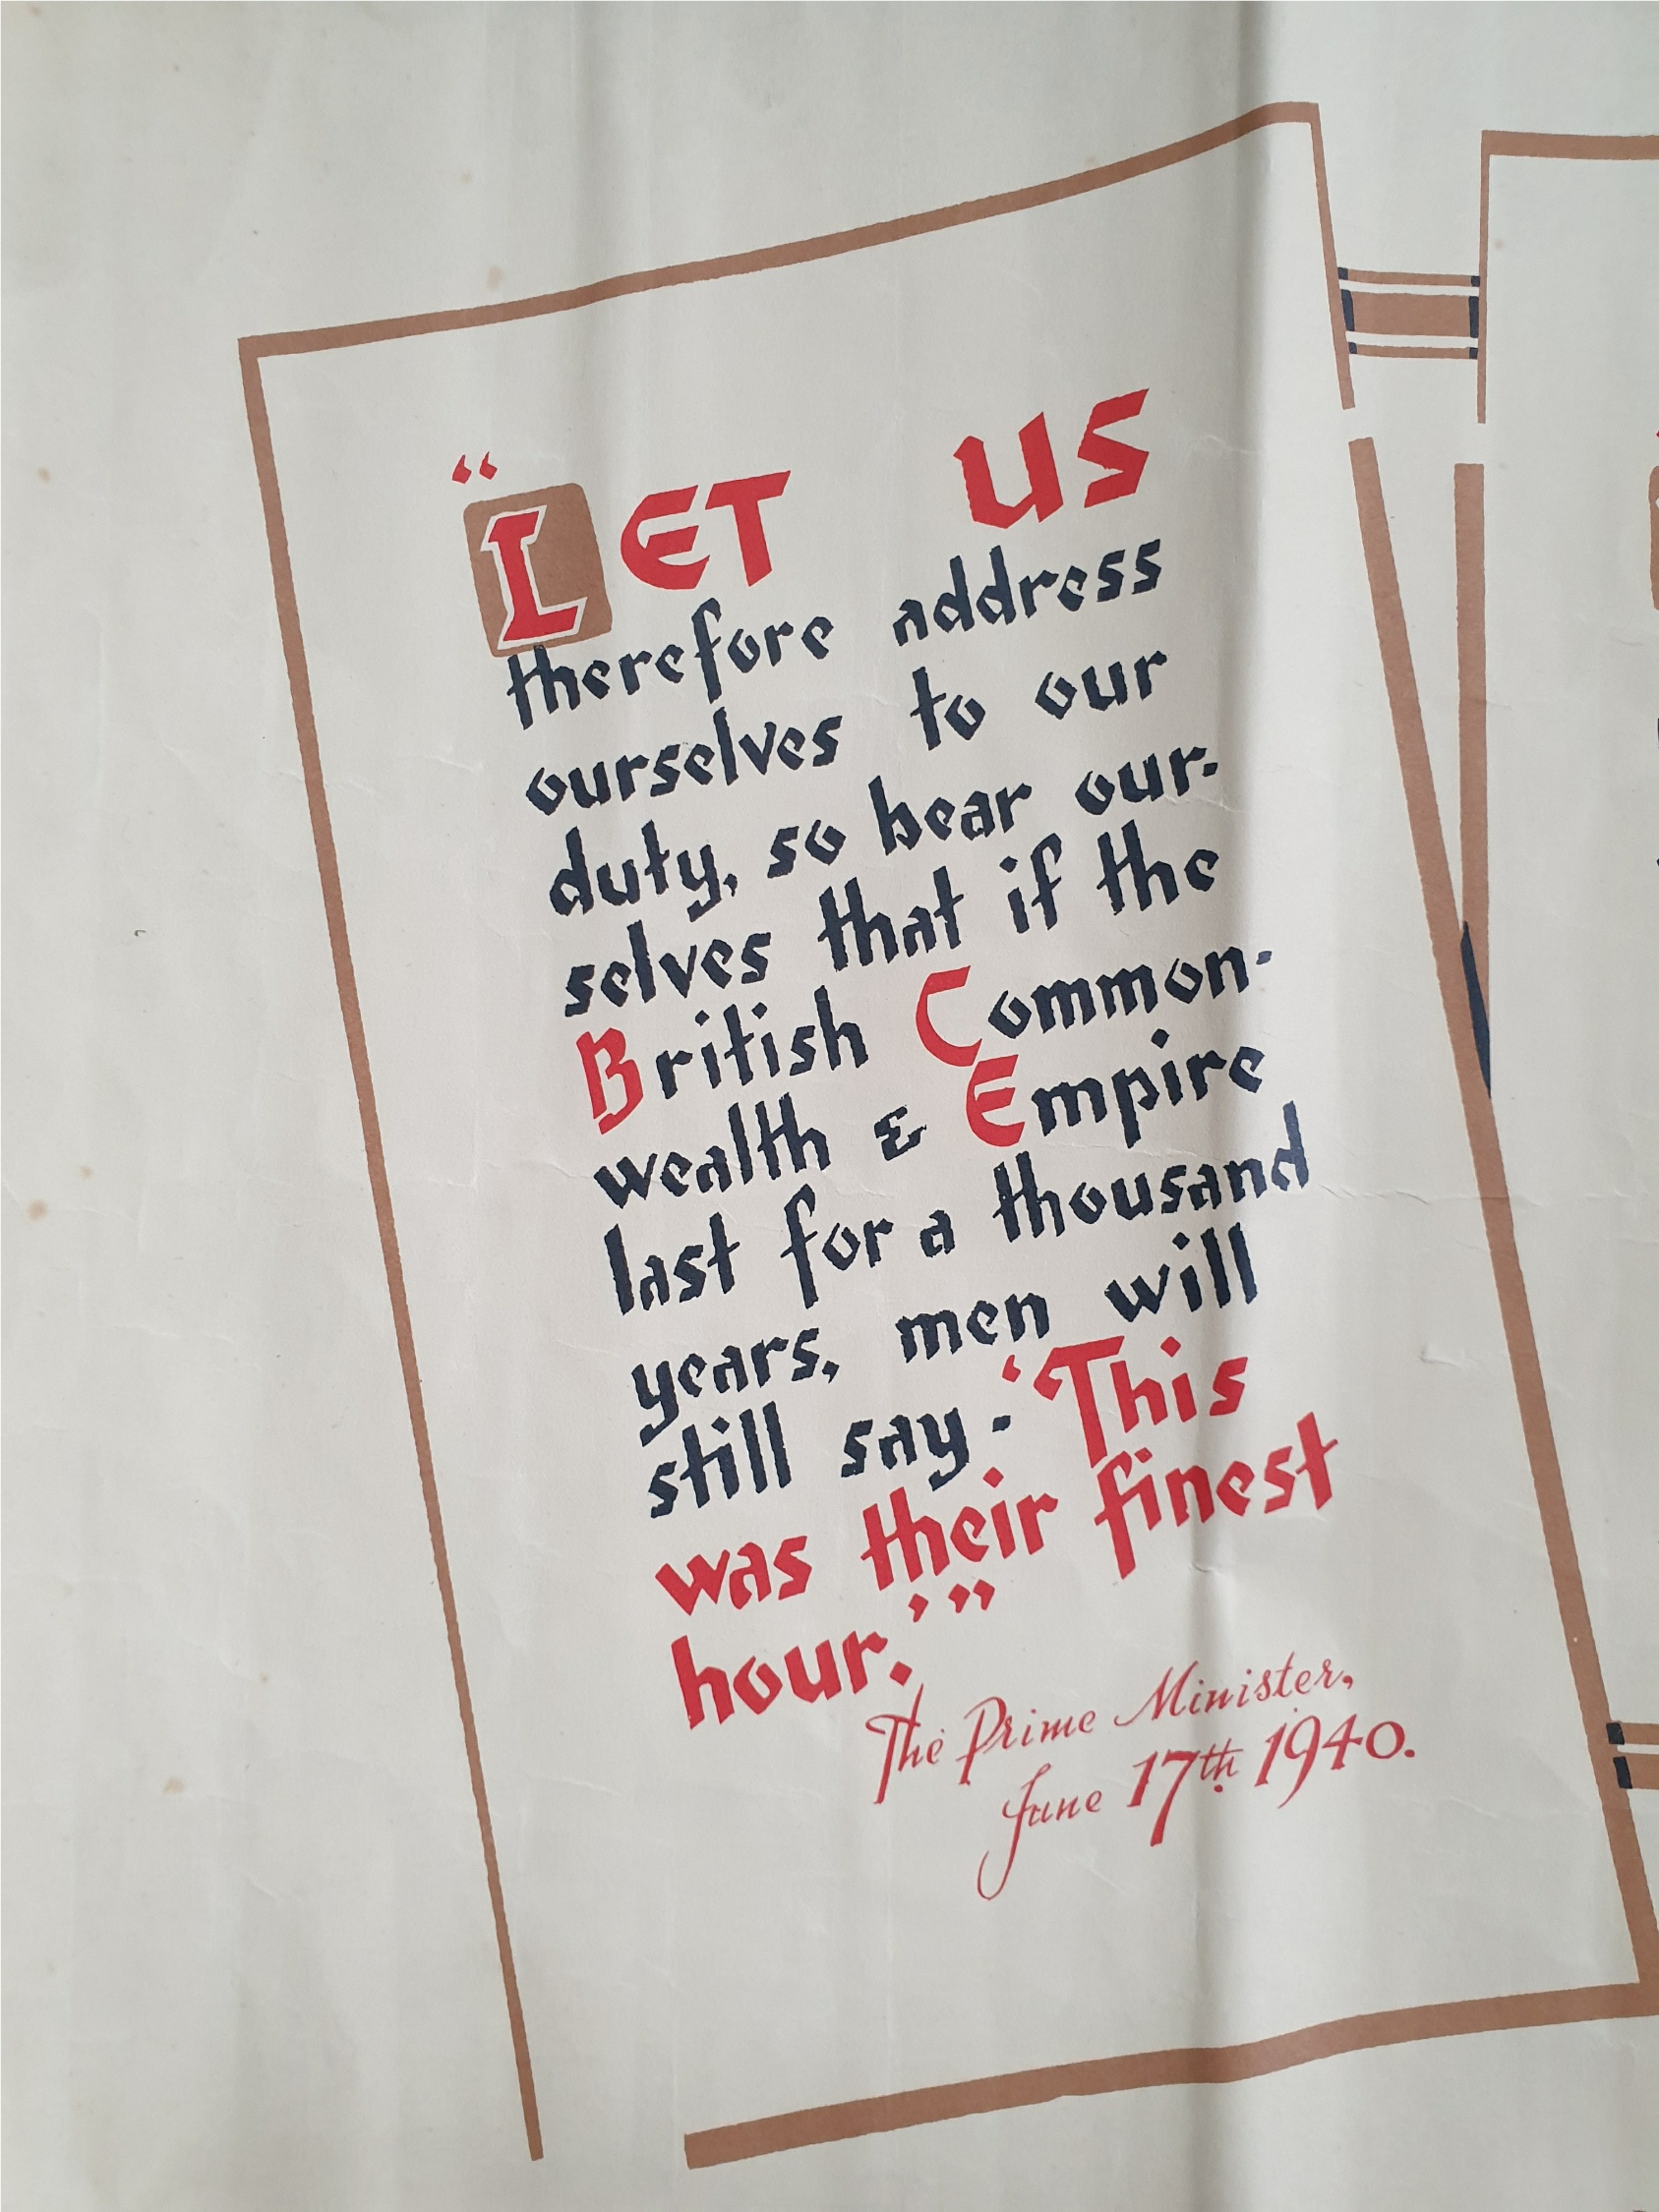 “LET US
therefore address
ourselves to our
duty, so bear our-
selves that if the
British Common-
wealth & Empire
last for a thousand
years, men will
still say - ‘This
was their finest
hour.’”
The Prime Minister,
June 17th 1940.